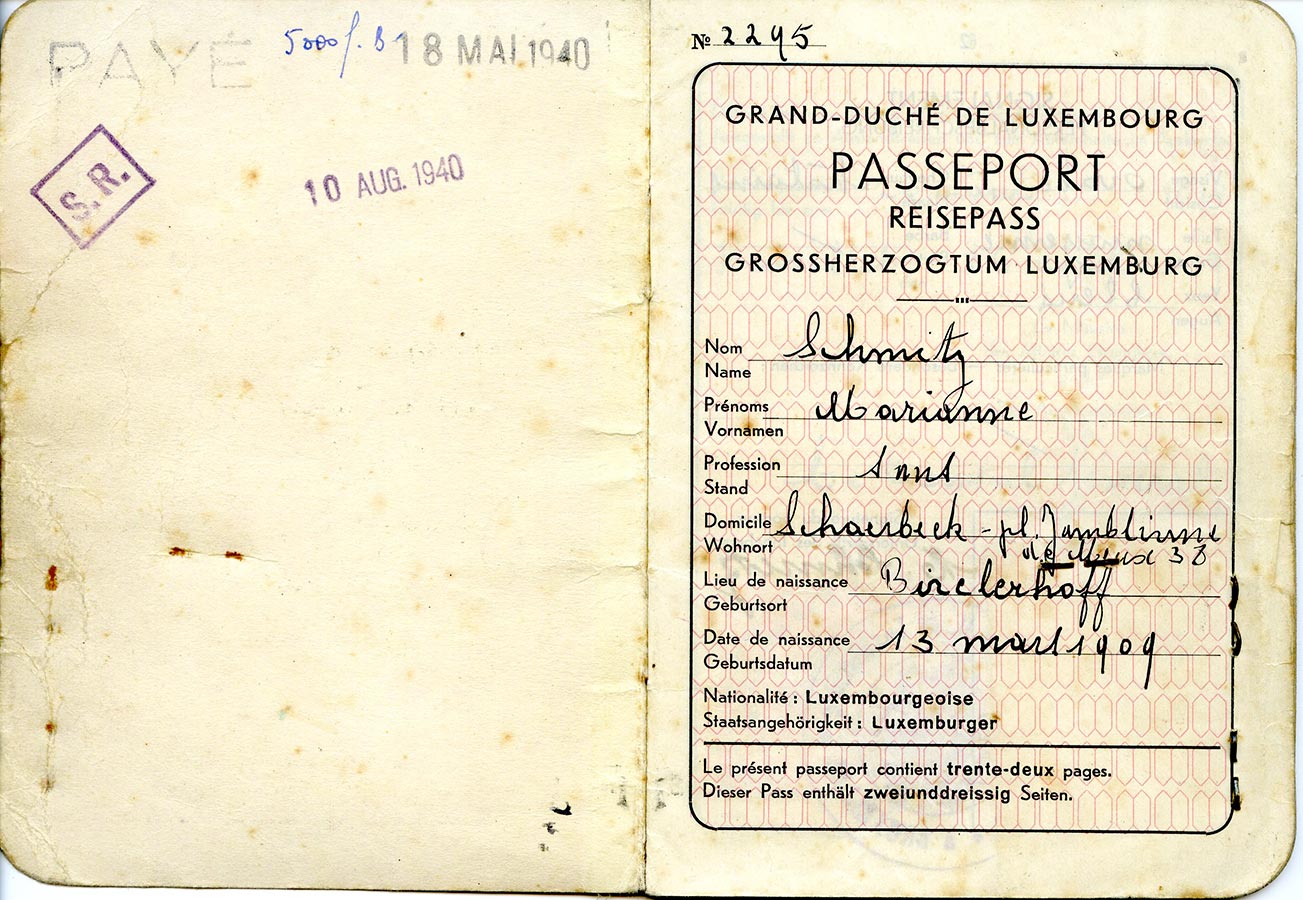 PAYÉ
5000 f. B
18 MAI 1940
S. R.
10 AUG. 1940
№ 2295
GRAND-DUCHÉ DE LUXEMBOURG
PASSEPORT
REISEPASS
GROSSHERZOGTUM LUXEMBURG
Nom Schmitz
Name
Prénoms Marianne
Vornamen
Profession sans
Stand
Domicile Schaerbeek - pl. Jamblinne
Wohnort de Meux 38
Lieu de naissance Birelerhoff
Geburtsort
Date de naissance 13 mars 1909
Geburtsdatum
Nationalité : Luxembourgeoise
Staatsangehörigkeit : Luxemburger
Le présent passeport contient trente-deux pages.
Dieser Pass enthält zweiunddreissig Seiten.